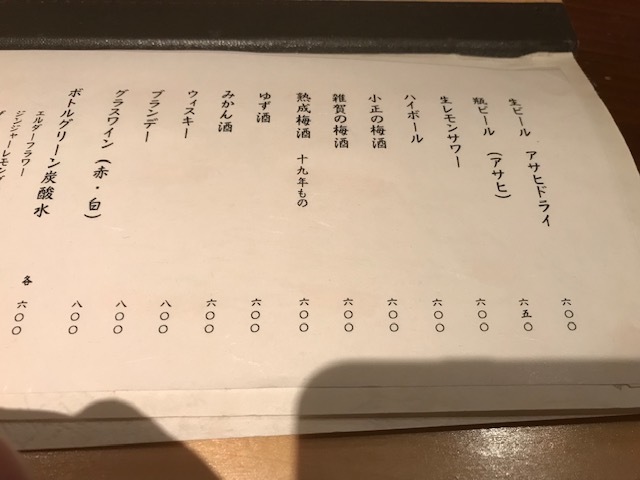 生ビール アサヒドライ 六〇〇
瓶ビール（アサヒ） 六五〇
生レモンサワー 六〇〇
ハイボール 六〇〇
小正の梅酒 六〇〇
雑賀の梅酒 六〇〇
熟成梅酒 十九年もの 六〇〇
ゆず酒 六〇〇
みかん酒 六〇〇
ウィスキー 八〇〇
ブランデー 八〇〇
グラスワイン（赤・白） 八〇〇
ボトルグリーン炭酸水 各 六〇〇
エルダーフラワー
ジンジャーレモング